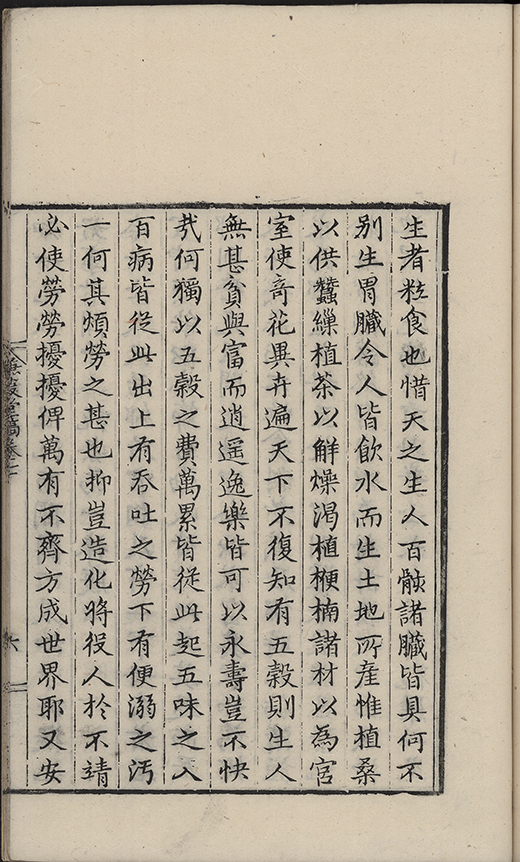 生者粒食也惜天之生人百骸諸臟皆具何不
別生胃臟令人皆飲水而生土地所產惟植桑
以供蠶繅植茶以解燥渴植楩楠諸材以為宮
室使奇花異卉遍天下不復知有五穀則生人
無甚貧與富而逍遥逸樂皆可以永壽豈不快
㦲何獨以五穀之費萬累皆從此起五味之入
百病皆從此出上有吞吐之勞下有便溺之汚
一何其煩勞之甚也抑豈造化將役人於不靖
必使勞勞擾擾俾萬有不齊方成世界耶又安